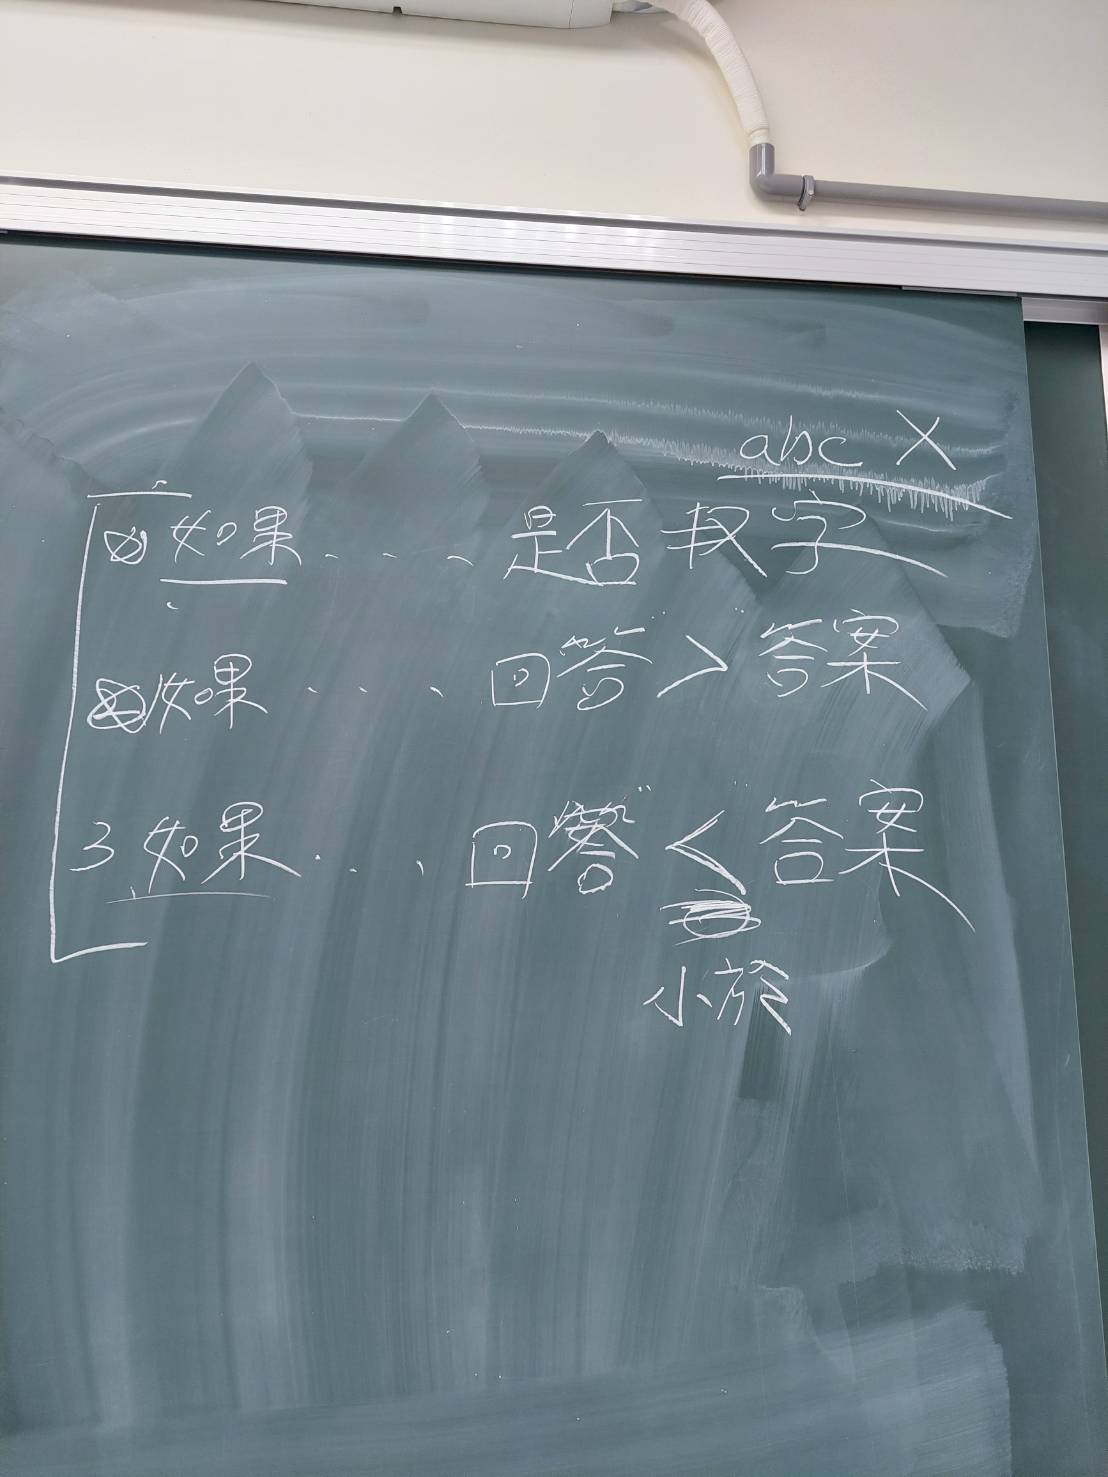 abc X
如果... 是否 数字
如果... 回答 > 答案
3 如果... 回答 < 答案
小於